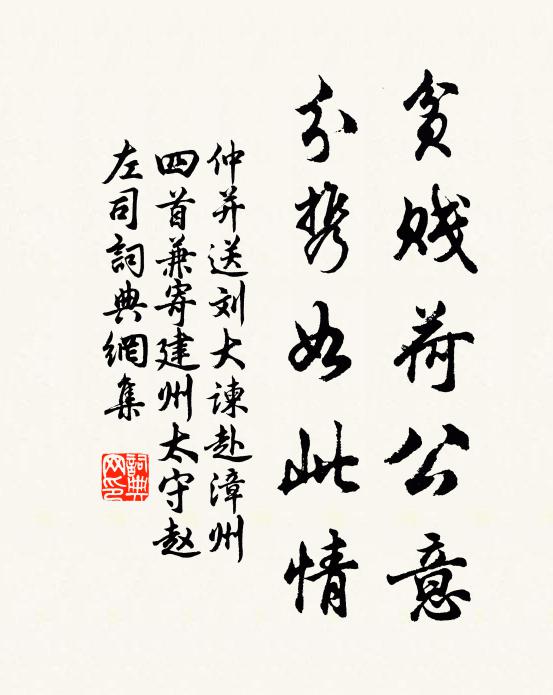 贫贱荷公意
分携如此情
仲并送刘大谏赴漳州
四首兼寄建州太守赵
左司詞典網集
詞典网印